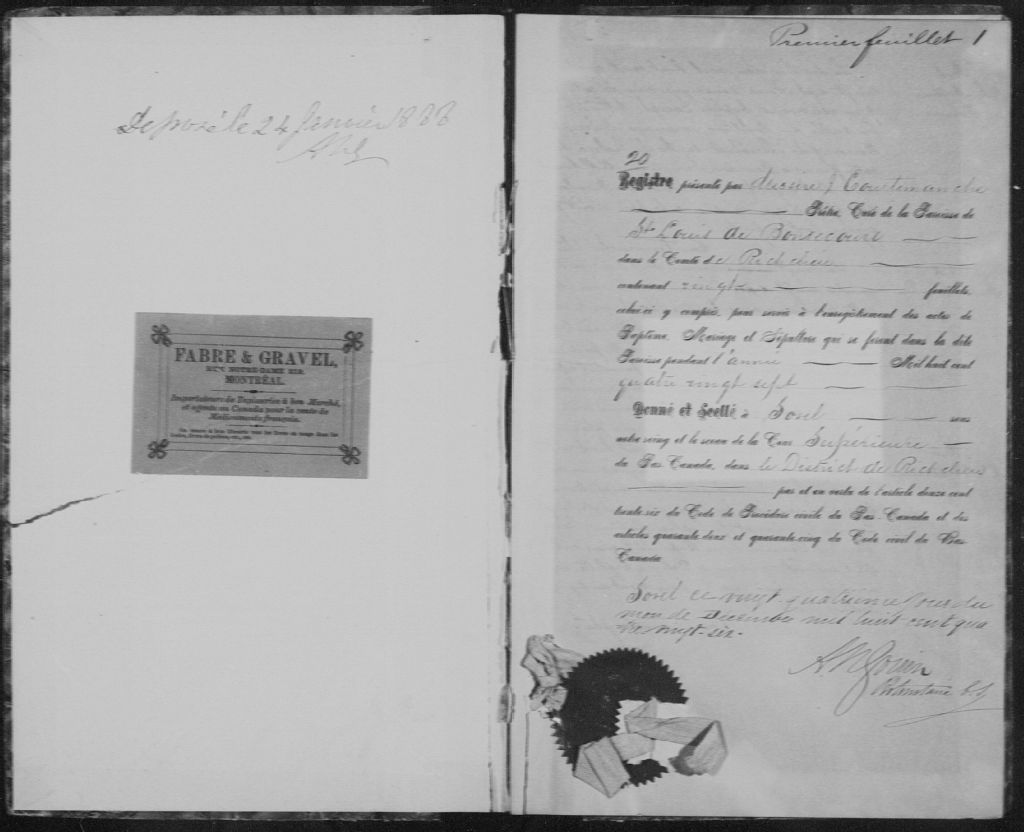 Déposé le 24 Janvier 1888
FABRE & GRAVEL,
RUE NOTRE-DAME 219.
MONTRÉAL.
Importateurs de Tapisseries à bon Marché,
et agents au Canada pour la vente de
Médicaments français.
Premier feuillet 1
20
Registre présenté par Messire J Courtemanche
Prêtre, Curé de la Paroisse de
St Louis de Bonsecours
dans le Comté de Richelieu
contenant vingt feuillets,
celui-ci y compris, pour servir à l'enregistrement des actes de
Baptême, Mariage et Sépulture qui se feront dans la dite
Paroisse pendant l'année Mil huit cent
quatre vingt sept
Donné et Scellé à Sorel sous
notre seing et le sceau de la Cour Supérieure
du Bas Canada, dans le District de Richelieu
par et en vertu de l'article douze cent
trente-six du Code de Procédure civile du Bas-Canada et des
articles quarante-deux et quarante-cinq du Code civil du Bas-
Canada
Sorel ce vingt-quatrième jour du
mois de Décembre mil huit cent qua
tre vingt-six.
A N Gouin
Protonotaire C.S